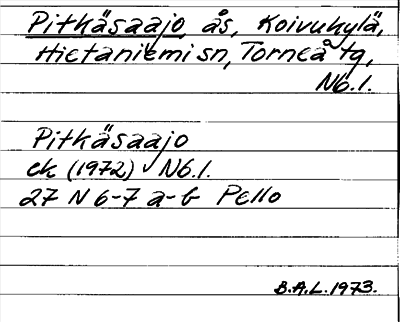 Pitkäsaajo, ås, Koivukylä,
Hietaniemi sn, Torneå tg,
Nb.l.
Pitkäsaajo
ek (1972) Nb.l.
27 N 6-7 a-b Pello
B.A.L. 1973.